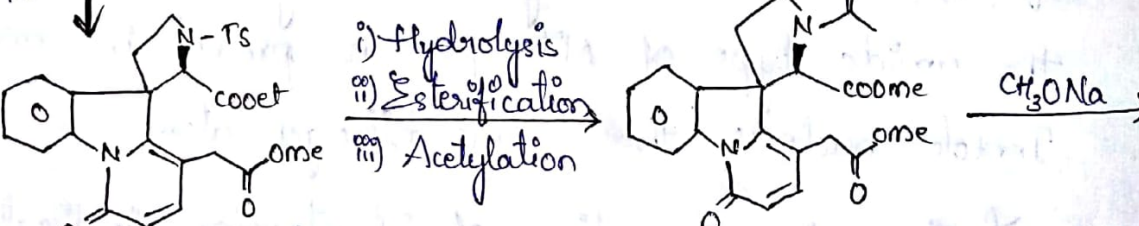 N-TS
COOet
O
N
Ome
O
O
i) Hydrolysis
ii) Esterification
iii) Acetylation
N
COOme
O
N
Ome
O
O
CH₃ONa